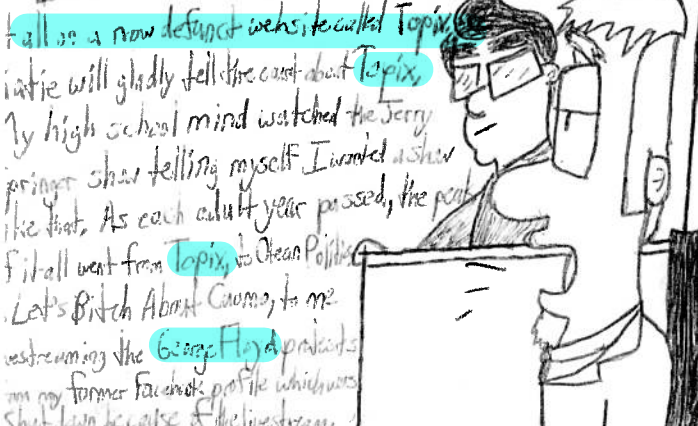 all on a now defunct website called Topix,
will gladly tell the court about Topix,
My high school mind watched the Jerry
Springer show telling myself I wanted a show
like that. As each adult year passed, the peak
of it all went from Topix, to Olean Politics
Let's Bitch About Cuomo, to me
livestreaming the George Floyd protests
my former Facebook profile which was
shut down because of the livestream.